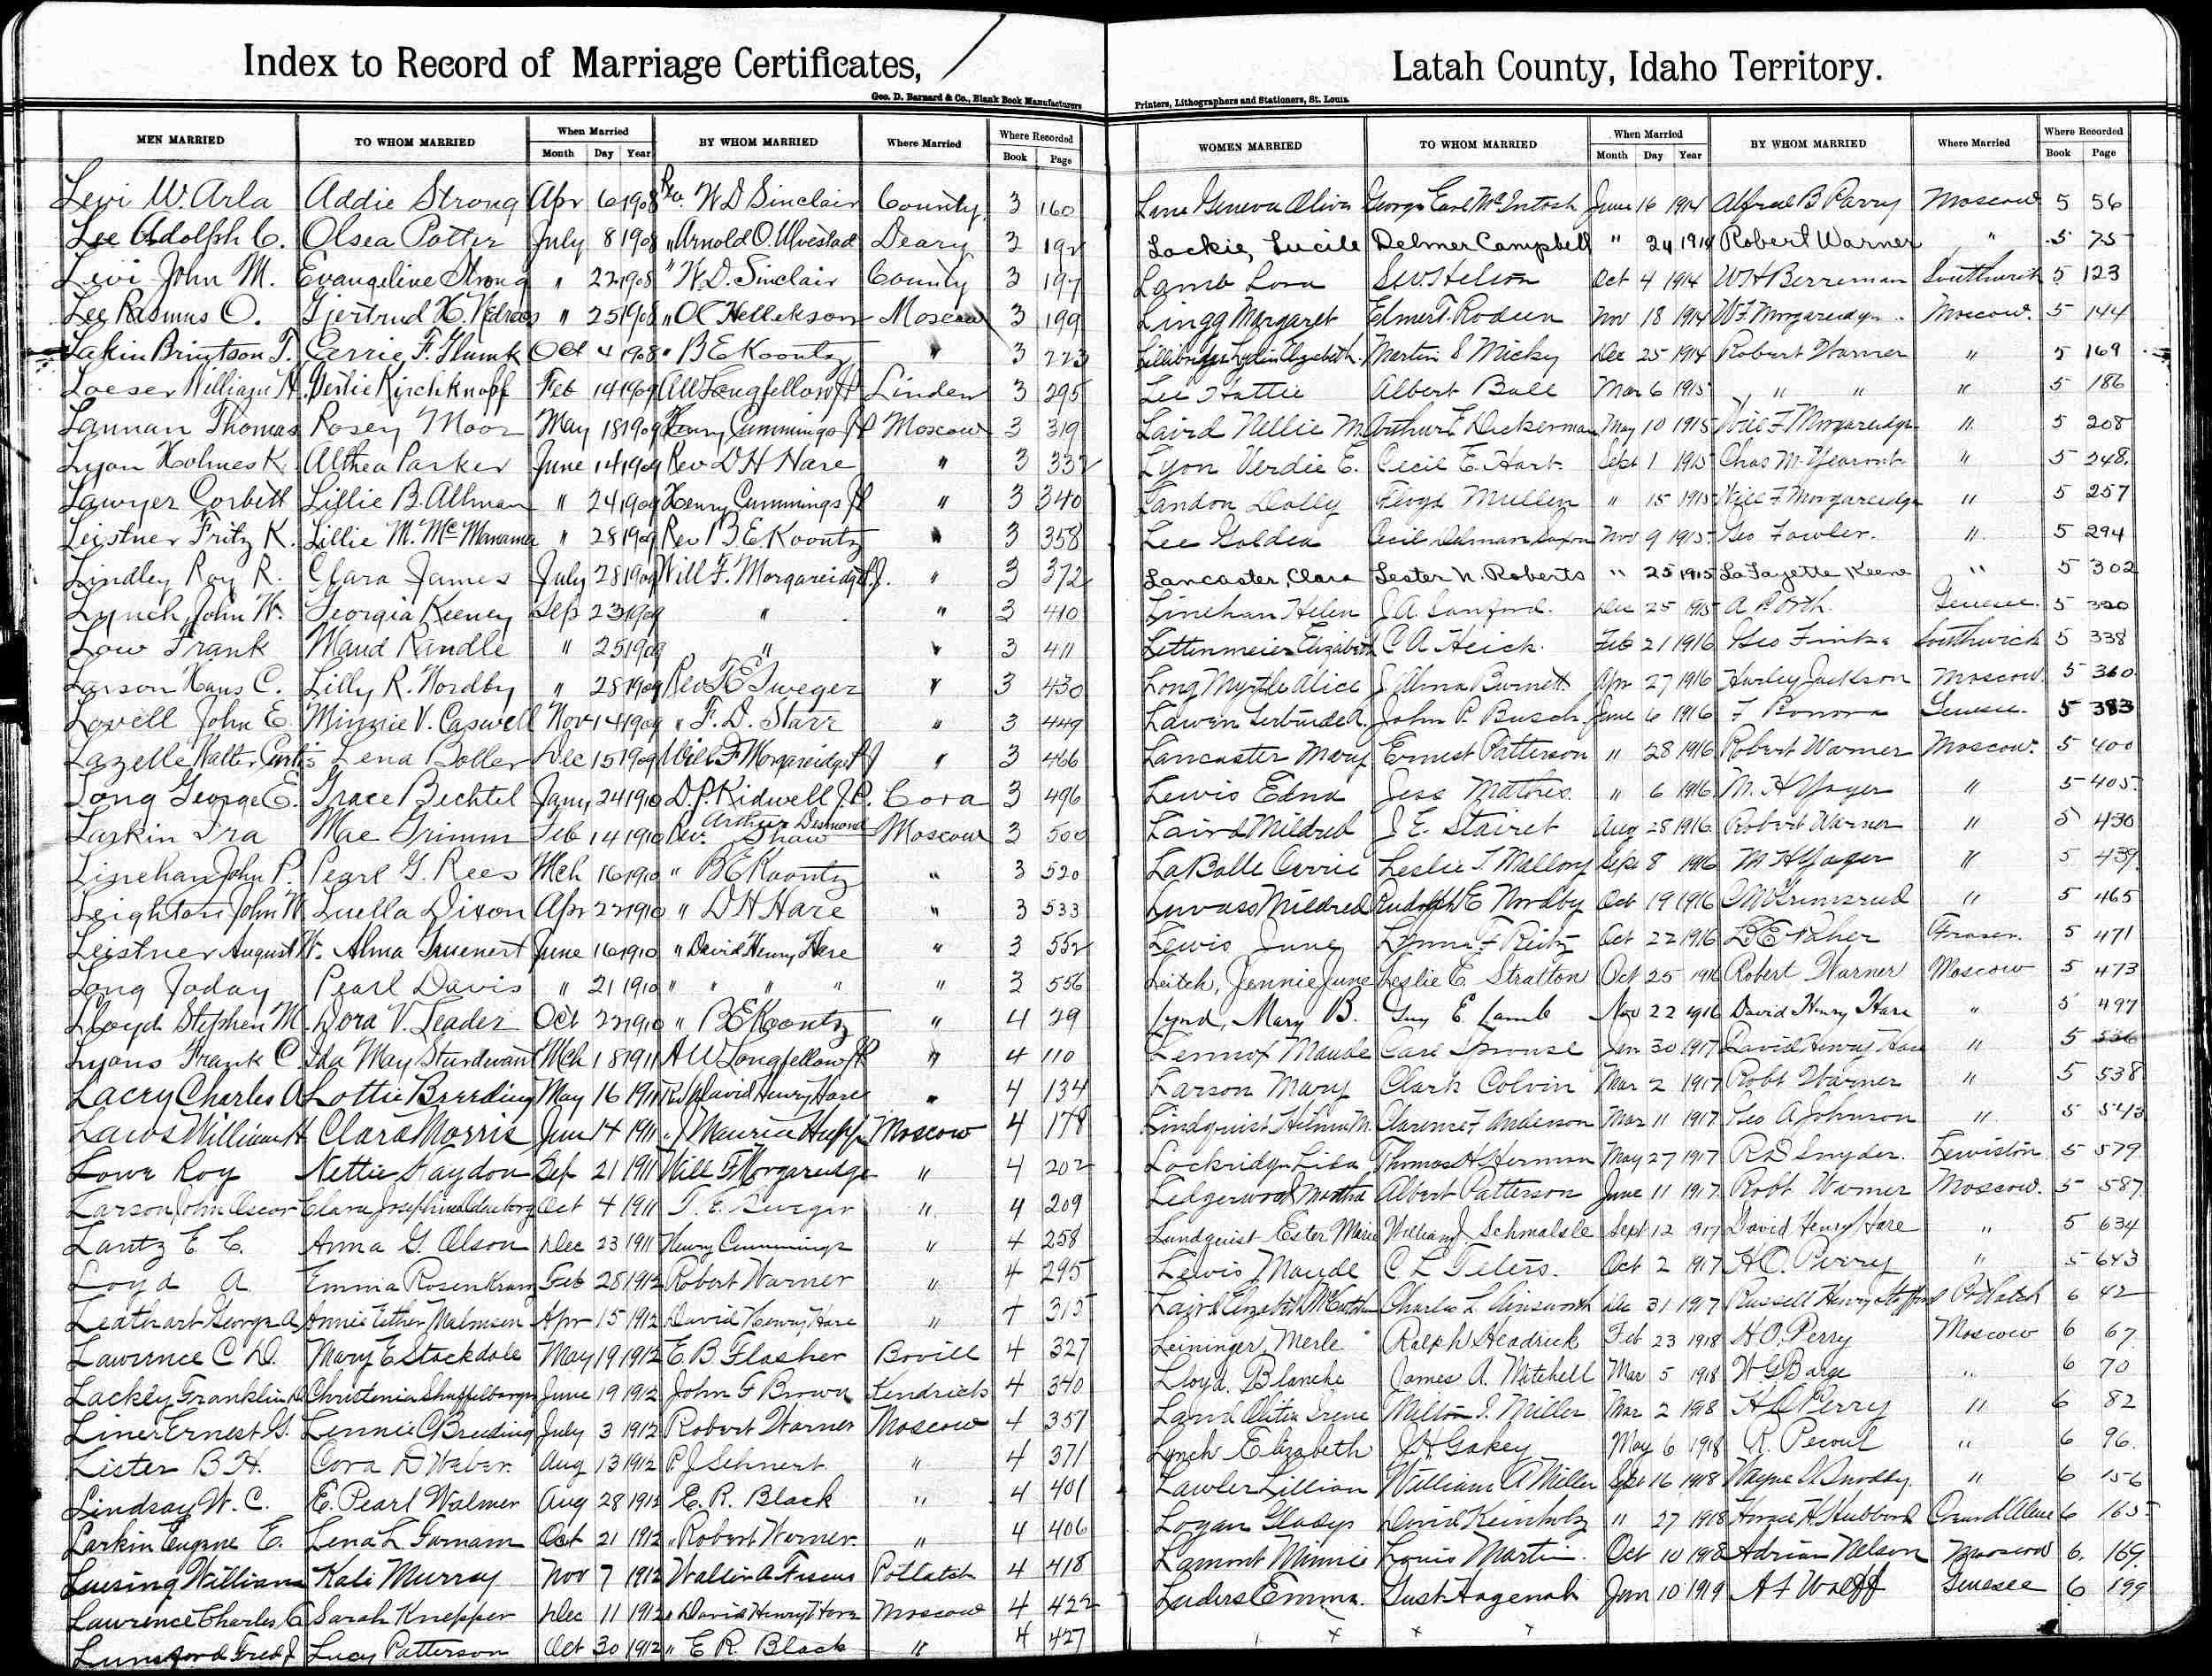 Index to Record of Marriage Certificates,
Geo. D. Barnard & Co., Blank Book Manufacturers
MEN MARRIED TO WHOM MARRIED When Married Month Day Year BY WHOM MARRIED Where Married Where Recorded Book Page
Levi W. Arla Addie Strong Apr 6 1908 Rev. W D Sinclair County 3 160
Lee Adolph C. Olsea Potter July 8 1908 " Arnold O. Ulvestad Deary 3 192
Levi John M. Evangeline Strong " 22 1908 " W. D. Sinclair County 3 197
Lee Rasmus O. Gjertrud " 25 1908 " O C Hellekson Moscow 3 199
Lakin Brintson T. Carrie F. Oct 4 1908 " B E Koontz " 3 223
Loeser William H. Kirchknopf Feb 14 1909 A W Longfellow JP Linden 3 295
Lannan Thomas Rosey Moor May 18 1909 Henry Cummings JP Moscow 3 319
Lyon Holmes K. Althea Parker June 14 1909 Rev D H Hare " 3 332
Lawyer Corbett Lillie B. Allman " 24 1909 Henry Cummings JP " 3 340
Leistner Fritz K. Lillie M. McManama " 28 1909 Rev B E Koontz " 3 358
Lindley Roy R. Clara James July 28 1909 Will F. Morgareidge P.J. " 3 372
Lynch John W. Georgia Keeney Sep 23 1909 " " 3 410
Low Frank Maud Randle " 25 1909 " " 3 411
Larson Hans C. Lilly R. Nordby " 28 1909 Rev " 3 430
Lovell John E. Minnie V. Caswell Nov 14 1909 " F. D. Starr " 3 449
Lazelle Walter Curtis Lena Boller Dec 15 1909 Will F Morgareidge PJ " 3 466
Long George E. Grace Bechtel Jany 24 1910 D. P. Kidwell J.P. Cora 3 496
Larkin Ira Mae Grimm Feb 14 1910 Rev. Arthur Desmond Shaw Moscow 3 500
Linehan John P. Pearl G. Rees Mch 16 1910 " B E Koontz " 3 520
Leighton John W Luella Dixon Apr 22 1910 " D H Hare " 3 533
Leistner August W. Alma June 16 1910 " David Henry Hare " 3 552
Long Joday Pearl Davis " 21 1910 " " " " " 3 556
Lloyd Stephen M. Dora V. Leader Oct 22 1910 " B E Koontz " 4 29
Lyons Frank C. Ida May Sturdevant Mch 18 1911 A W Longfellow JP " 4 110
Lacey Charles A Lottie Breeding May 16 1911 Rev David Henry Hare " 4 134
Laws William H Clara Morris Jun 14 1911 " J Maurice Hupp Moscow 4 178
Lowe Roy Nettie Haydon Sep 21 1911 Will F Morgareidge " 4 202
Larson John Oscar Clara Josephine Oct 4 1911 T. E. " 4 209
Lantz E. C. Anna G. Olson Dec 23 1911 Henry Cummings " 4 258
Loyd A Emma Rosenkranz Feb 28 1912 Robert Warner " 4 295
Leathart George A Annie Esther Malmsen Apr 15 1912 David Henry Hare " 4 315
Lawrence C. D. Mary E Stockdale May 19 1912 E. B. Flasher Bovill 4 327
Lackey Franklin Christenia June 19 1912 John F Brown Kendrick 4 340
Liner Ernest G. Lennie C Breeding July 3 1912 Robert Warner Moscow 4 357
Lister B. H. Cora D Weber Aug 13 1912 P. J Schnert " 4 371
Lindsay W. C. E. Pearl Walmer Aug 28 1912 E. R. Black " 4 401
Larkin Eugene E. Lena L Farnam Oct 21 1912 " Robert Warner " 4 406
Luesing William Kate Murray Nov 7 1912 Walter A Fiscus Potlatch 4 418
Lawrence Charles C Sarah Knepper Dec 11 1912 " David Henry Hare Moscow 4 422
Lunsford Fred J Lucy Patterson Oct 30 1912 " E R. Black " 4 427
Latah County, Idaho Territory.
Printers, Lithographers and Stationers, St. Louis.
WOMEN MARRIED TO WHOM MARRIED When Married Month Day Year BY WHOM MARRIED Where Married Where Recorded Book Page
Geneva Olive George Earl McIntosh June 16 1914 Alfred B Parry Moscow 5 56
Lackie, Lucile Delmer Campbell " 24 1914 Robert Warner " 5 75
Lamb Lora Oct 4 1914 W H Berreman Southwick 5 123
Lingg Margaret Elmer T. Rodeen Nov 18 1914 W F Morgareidge Moscow. 5 144
Lydia Elizabeth Martin S Micky Dec 25 1914 Robert Warner " 5 169
Lee Hattie Albert Ball Mar 6 1915 " " " 5 186
Laird Nellie M. Arthur E Dickerman May 10 1915 Will F Morgareidge " 5 208
Lyon Verdie E. Cecil E. Hart Sept 1 1915 Chas M. " 5 248
Landon Dolly Floyd Mullen " 15 1915 Will F Morgareidge " 5 257
Lee Golden Cecil Nov 9 1915 Geo Fowler. " 5 294
Lancaster, Clara Lester N. Roberts " 25 1915 LaFayette Keene " 5 302
Linehan Helen J. A. Sanford. Dec 25 1915 A B Orth. Genesee. 5 320
Lettenmeier Elizabeth C A Heick. Feb 21 1916 Geo Finke Southwick 5 338
Long Myrtle Alice J Alma Burnett Apr 27 1916 Harley Jackson Moscow. 5 360
A. John P. Busch. June 6 1916 F Bonora Genesee. 5 383
Lancaster Mary Ernest Patterson " 28 1916 Robert Warner Moscow. 5 400
Lewis Edna Jess Mathes. " 6 1916 M. H Yager " 5 405
Laird Mildred J. E. Stairet Aug 28 1916 Robert Warner " 5 430
LaBolle Carrie Leslie T. Mallory Sept 8 1916 M H Yager " 5 439
Luvaas Mildred Rudolph E Nordby Oct 19 1916 O M Grimsrud " 5 465
Lewis June Lynne F Reitz Oct 22 1916 Fraser. 5 471
Leitch, Jennie June Leslie C. Stratton Oct 25 1916 Robert Warner Moscow 5 473
Lynd, Mary B. Guy E. Lamb Nov 22 1916 David Henry Hare " 5 497
Lennox Maude Carl Sprouse Jan 30 1917 David Henry Hare " 5 536
Larson Mary Clark Colvin Mar 2 1917 Robt Warner " 5 538
Lindquist Hilma M. Clarence F Anderson Mar 11 1917 Geo A Johnson " 5 543
Lockridge Lida Thomas H Herman May 27 1917 R D Snyder. Lewiston 5 579
Ledgerwood Martha Albert Patterson June 11 1917 Robt Warner Moscow. 5 587
Lundquist Ester Marie William J. Schmalsle Sept 12 1917 David Henry Hare " 5 634
Lewis Maude C L Teters. Oct 2 1917 H O. Perry " 5 643
Laird Elizabeth McCutchen Charles L Ainsworth Dec 31 1917 Russell Henry Potlatch 6 42
Leininger Merle Ralph Headrick Feb 23 1918 H O. Perry Moscow 6 67
Lloyd, Blanche James A. Mitchell Mar 5 1918 W G Barge " 6 70
Land Irene Milton I. Miller Mar 2 1918 H O Perry " 6 82
Lynch Elizabeth J H Gakey May 6 1918 R. Pecoul " 6 96
Lawler Lillian William A Miller Sept 16 1918 Wayne S Snoddy " 6 156
Logan Gladys David Keinholz " 27 1918 Horace H Hubbard 6 165
Lamont Minnie Louis Martin. Oct 10 1918 Adrian Nelson Moscow 6 169
Luders Emma. Gust Hagenah Jan 10 1919 A F Wolff Genesee 6 199